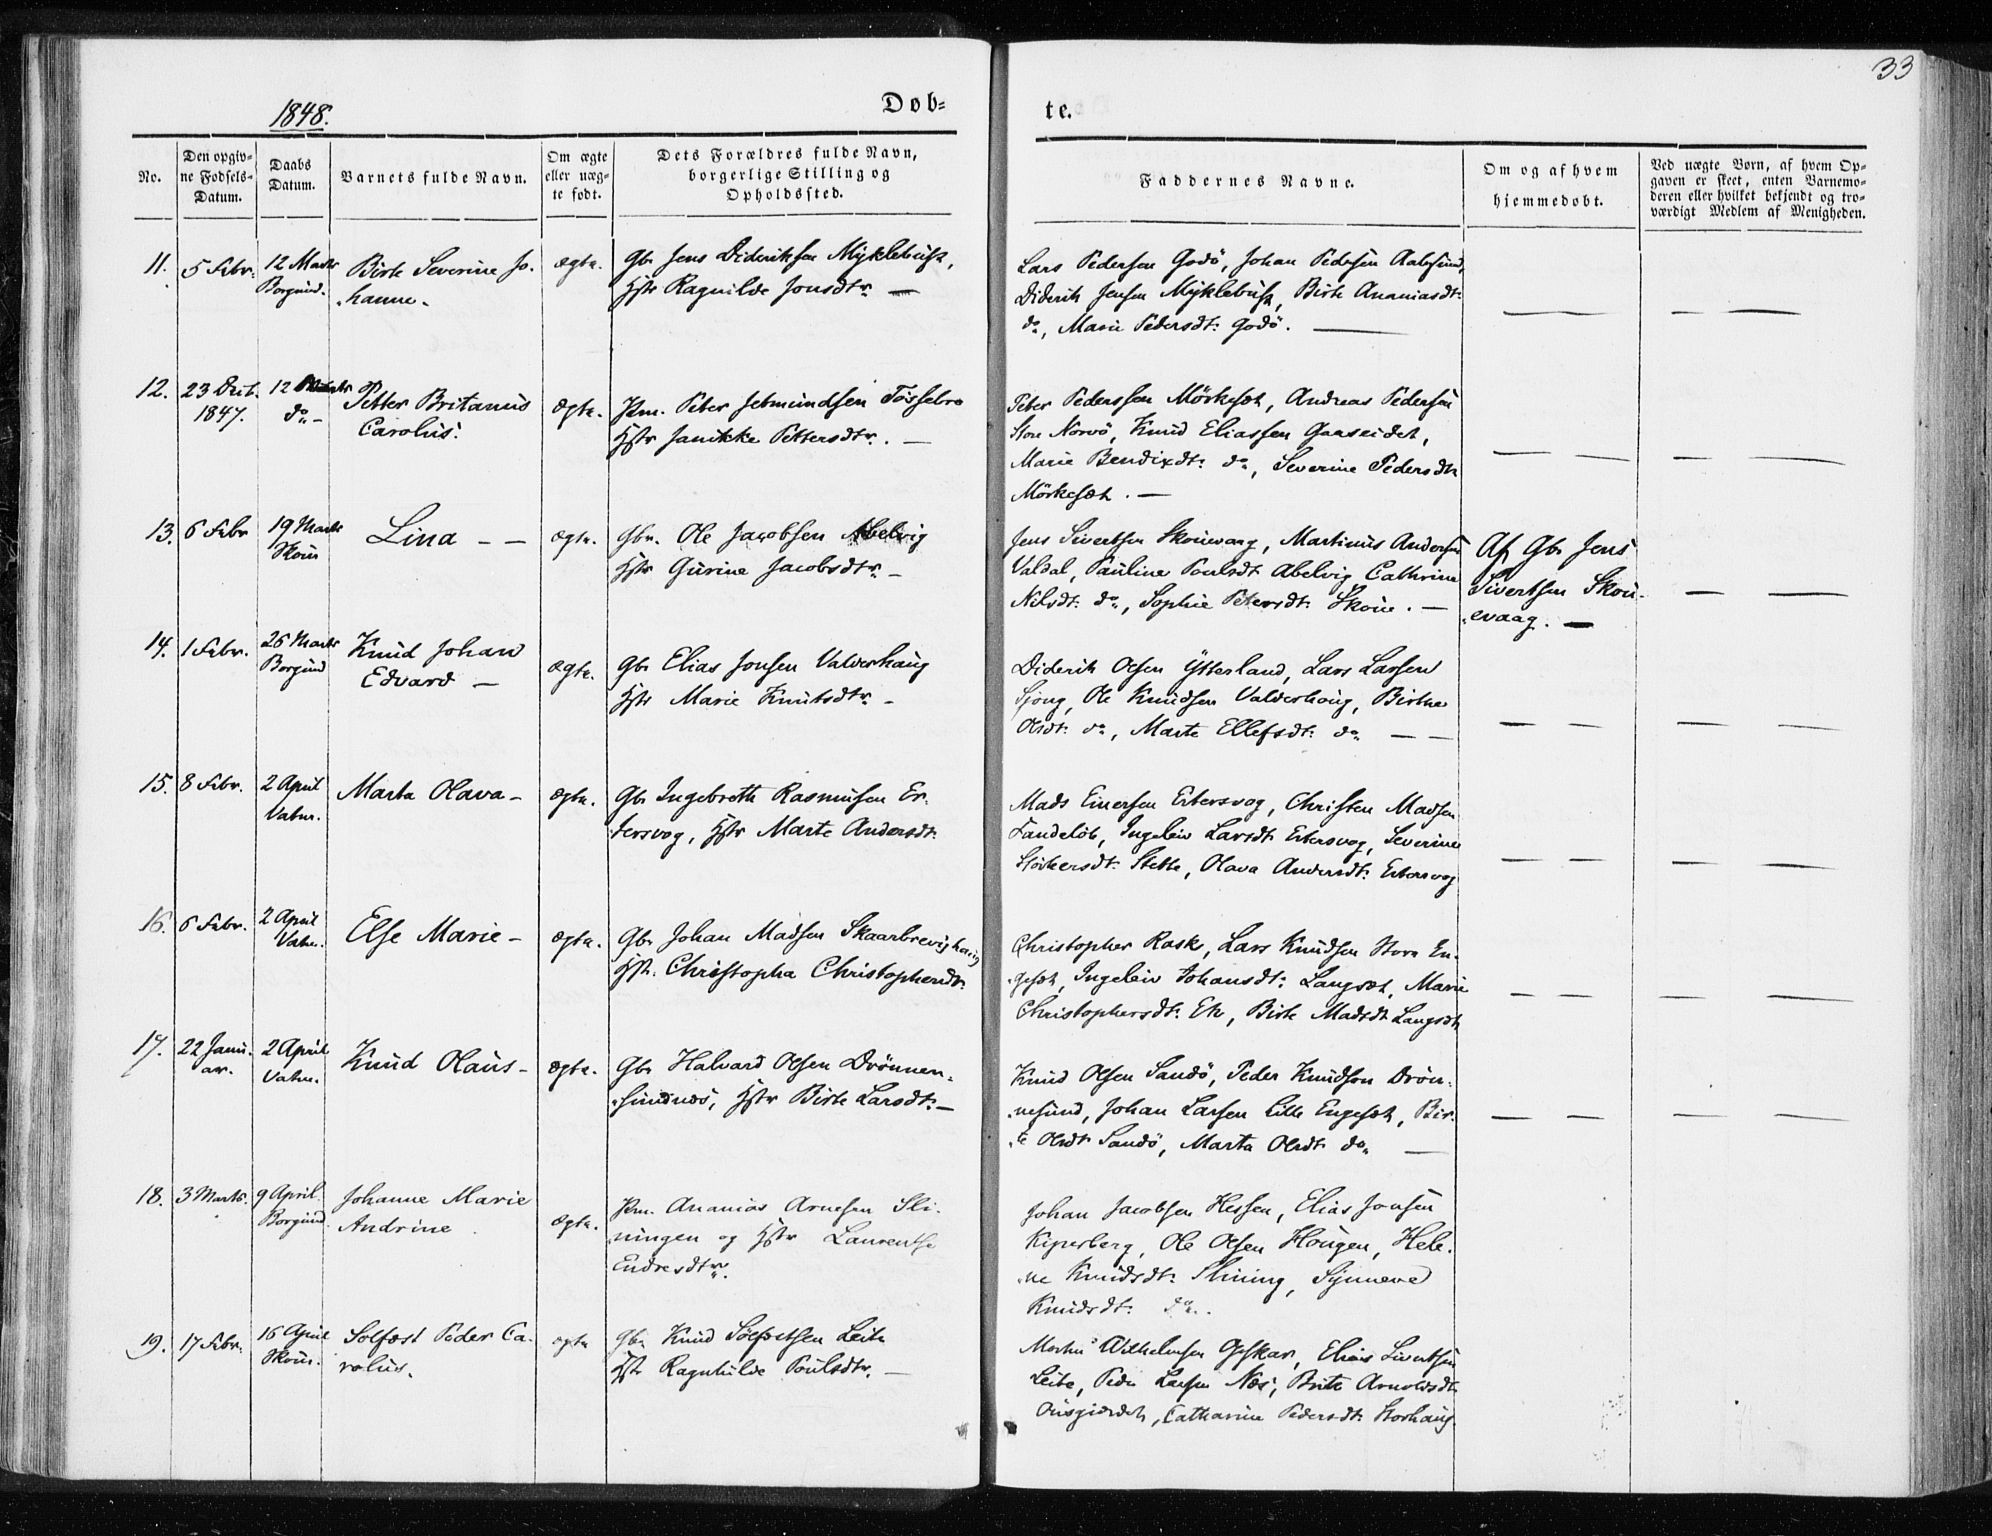 33
1848.
Døb-
te.
No.
Den opgiv-
ne Fødsels-
Datum.
Daabs
Datum.
Barnets fulde Navn.
Om ægte
eller uæg-
te født.
Dets Forældres fulde Navn,
borgerlige Stilling og
Opholdssted.
Faddernes Navne.
Om og af hvem
hjemmedøbt.
Ved uægte Børn, af hvem Op-
gaven er skeet, enten Barnemo-
deren eller hvilket bekjendt og tro-
værdigt Medlem af Menigheden.
11.
5 Febr.
12 Marts
Borgund.
Birte Severine Jo-
hanne.
ægte.
Gbr Jens Dideriksen Myklebust,
Hstr Ragnilde Jonsdtr. —
Lars Pedersen Godö, Johan Pedersen Aalesund,
Diderik Jensen Myklebust, Birte Ananiasdt:
do, Marie Pedersdt: Godö. —
12.
23 Dec.
1847.
12
do -
Petter Britanus
Carolus.
ægte.
Peter Jetmundsen Tösse
Hstr Janikke Pettersdtr. —
Peter Pederssen Mörkeset, Andreas Pedersen
Store Norvö, Knud Eliassen Gaaseidet,
Marie Bendixdt: do, Severine Pedersdt
Mörkeset. —
13.
6 Febr
19 Marts
Skoue
Lina — —
ægte.
Gbr. Ole Jacobsen Abelvig
Hstr Gurine Jacobsdtr. —
Jens Sivertsen Skouevaag, Martinus Andersen
Valdal, Pauline Poulsdt Abelvig Cathrine
Nilsdt: do, Sophie Petersdt: Skoue. —
Af Gbr Jens
Sivertsen Skou-
evaag. —
14.
1 Febr.
26 Marts
Borgund
Knud Johan
Edvard —
ægte.
Gbr Elias Jonsen Valderhaug
Hstr Marie Knutsdtr. -
Diderik Olsen Ytterland, Lars Larsen
Sjong, Ole Knudsen Valderhoug, Birthe
Olsdt: do, Marte Ellefsdt: do — —
15.
8 Febr.
2 April
Vatn.
Marta Olava -
ægte.
Gbr Ingebreth Rasmusen Er-
tersvog, Hstr Marte Andersdt:
Mads Einersen Ertersvog, Christen Madsen
Tandeløb, Ingeleiv Larsdt Ertersvog, Severine
Stette, Olava Andersdt: Ertersvog
16.
6 Febr.
2 April
Vatn.
Else Marie -
ægte.
Gbr Johan Madsen Skaarbrevighaug
Hstr. Christopha Christophersdtr.
Christopher Rask, Lars Knudsen Store En-
geset, Ingeleiv Johansdt: Langset, Marie
Christophersdt: Ek, Birte Madsdt Langset
17.
22 Janu-
ar.
2 April
Vatn.
Knud Olaus -
ægte.
Gbr Halvard Olsen Drönnen-
sundnes, Hstr Birte Larsdt. —
Knud Olsen Sandö, Peder Knudson Drön-
nesund, Johan Larsen Lille Engeset, Bir-
te Olsdt Sandö, Marta Olsdt do —
18.
3 Marts.
9 April
Borgund.
Johanne Marie
Andrine.
ægte.
Ananias Arnesen Sli-
ningen og Hstr Laurentse
Endresdtr.
Johan Jacobsen Hessen, Elias Jonsen
Kiperberg, Ole Olsen Hougen, Hele-
ne Knudsdt: Slining, Synneve
Knudsdt: do.
19.
17 Febr.
16 April
Skoue.
Solfæst Peder Ca-
rolus.
ægte
Gbr Knud Solfestsen Leite
Hstr Ragnhilde Poulsdtr. —
Martin Wilhelmsen Gjskar, Elias Sivertsen
Leite, Peder Larsen Næs, Brite Arnoldsdt
Catharine Pedersdt: Storhaug